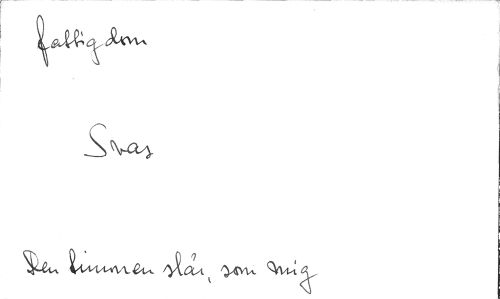 fattigdom
Svas
Den timmen slår, som mig